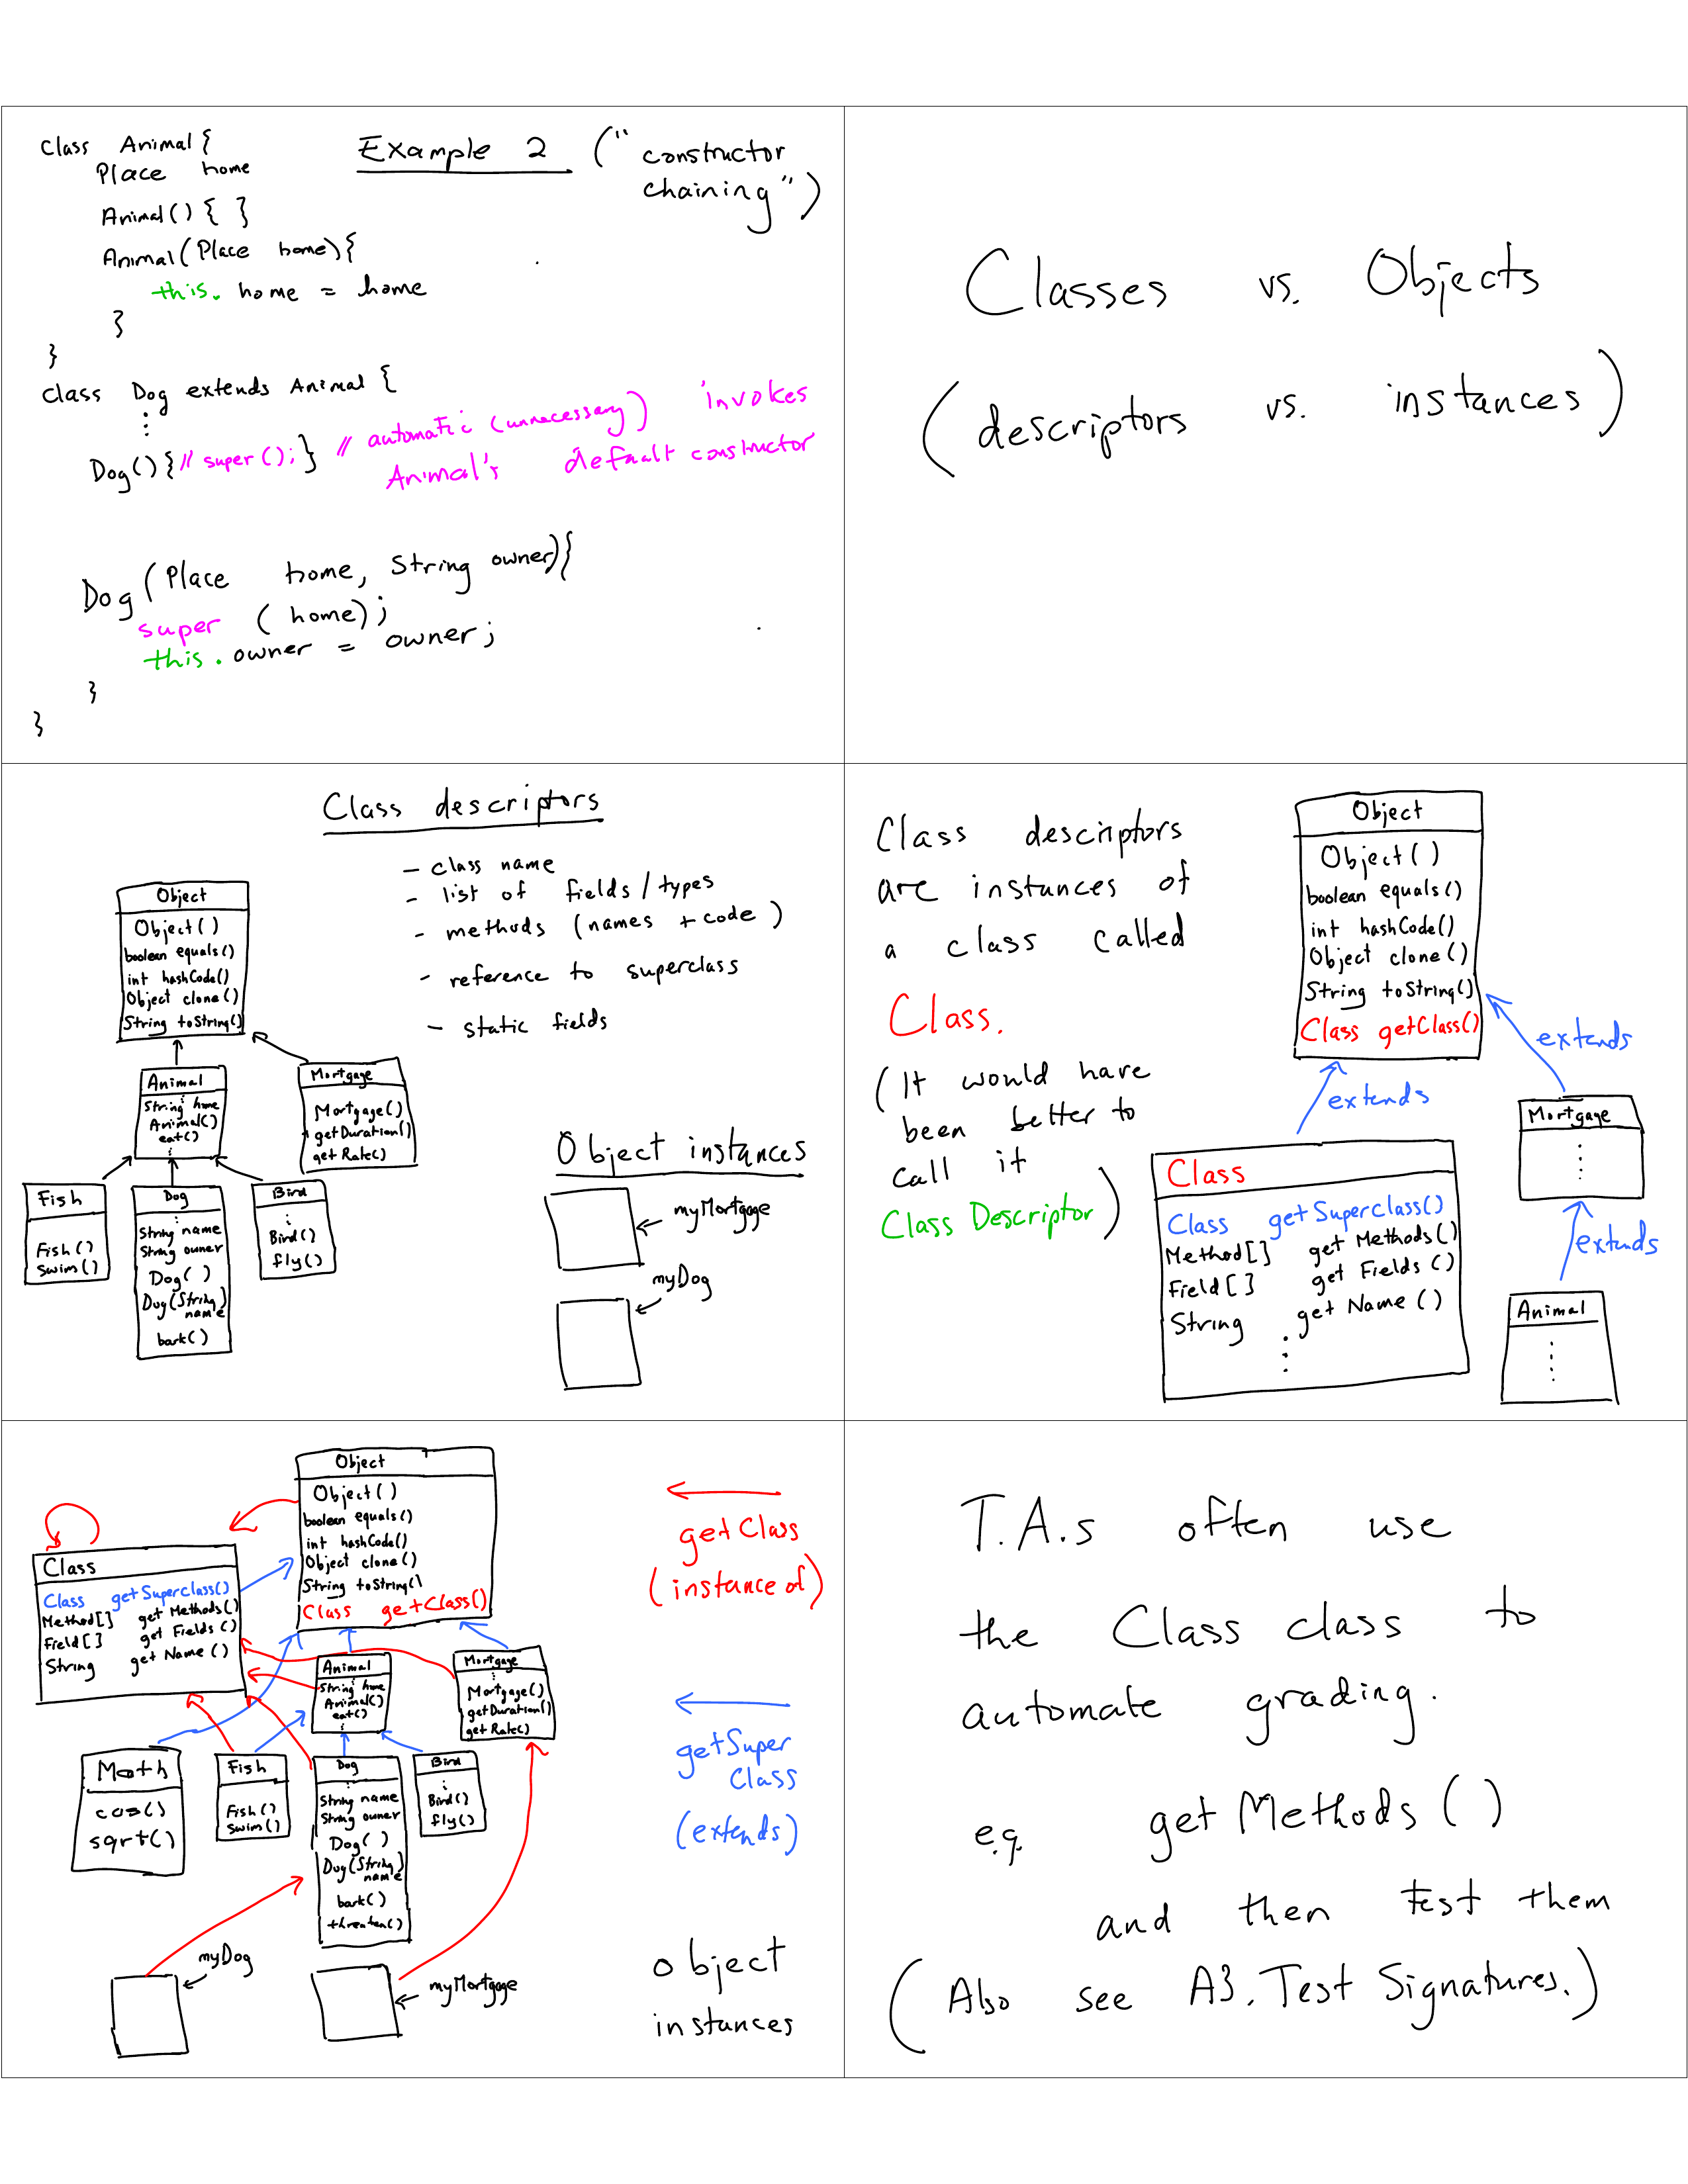 Example 2 ("constructor
chaining")
class Animal{
Place home
Animal() { }
Animal(Place home){
this. home = home
}
}
class Dog extends Animal {
⋮
Dog(){// super();} // automatic (unnecessary) invokes
Animal's default constructor
Dog (Place home, String owner){
super (home);
this. owner = owner;
}
}
Classes vs. Objects
(descriptors vs. instances)
Class descriptors
- class name
- list of fields/types
- methods (names + code)
- reference to superclass
- static fields
Object
Object()
boolean equals()
int hashCode()
Object clone()
String toString()
Animal
String home
Animal()
eat()
⋮
Mortgage
Mortgage()
getDuration()
get Rate()
Fish
Fish()
swim()
Dog
⋮
String name
String owner
Dog( )
Dog(String
name)
bark()
Bird
⋮
Bird()
fly()
Object instances
myMortgage
myDog
Class descriptors
are instances of
a class called
Class.
(It would have
been better to
call it
Class Descriptor)
Object
Object()
boolean equals()
int hashCode()
Object clone()
String toString()
Class getClass()
extends
extends
Mortgage
⋮
extends
Animal
⋮
Class
Class getSuperclass()
Method[] get Methods()
Field[] get Fields()
String get Name()
⋮
Object
Object()
boolean equals()
int hashCode()
Object clone()
String toString()
Class getClass()
Class
Class getSuperclass()
Method[] get Methods()
Field[] get Fields()
String get Name()
Animal
String home
Animal()
eat()
⋮
Mortgage
⋮
Mortgage()
getDuration()
get Rate()
Math
cos()
sqrt()
Fish
Fish()
swim()
Dog
⋮
String name
String owner
Dog( )
Dog(String
name)
bark()
threaten()
Bird
⋮
Bird()
fly()
myDog
myMortgage
getClass
(instance of)
getSuper
Class
(extends)
object
instances
T.A.s often use
the Class class to
automate grading.
e.g. get Methods()
and then test them
(Also see A3. Test Signatures.)